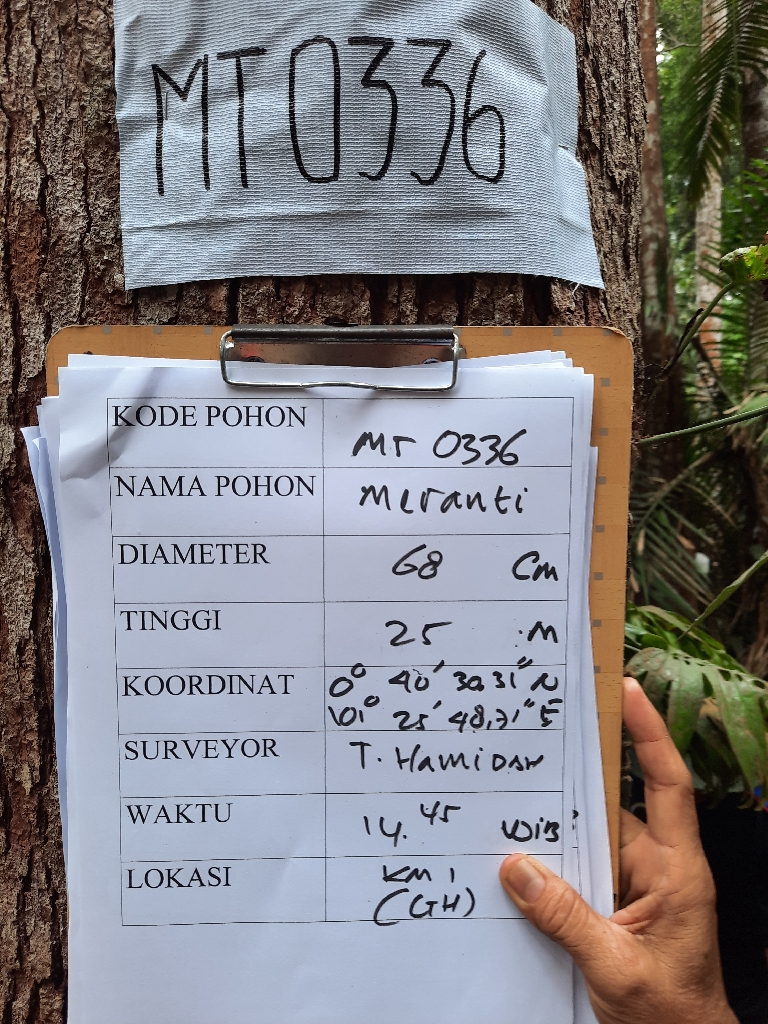 MT 0336
KODE POHON MT 0336
NAMA POHON Meranti
DIAMETER 68 Cm
TINGGI 25 M
KOORDINAT 0° 40' 30,31" N
101° 25' 48,71" E
SURVEYOR T. HamiDAH
WAKTU 14.45 WIB
LOKASI KM 1
(GH)